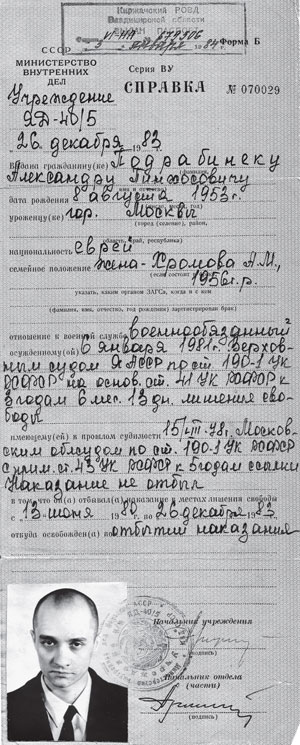 Киржачский РОВД
Владимирской области
VI-НА 678306
января 1984 Форма Б
СССР
МИНИСТЕРСТВО
ВНУТРЕННИХ
ДЕЛ
Серия ВУ
СПРАВКА
№ 070029
Учреждение
ЯД-40/5
26 декабря 1983
Выдана гражданину(ке) Подрабинеку
Александру Пинхосовичу
дата рождения 8 августа 1953 г.
уроженцу(ке) гор. Москвы
(город (селение), район,
область, край, республика)
национальность еврей
семейное положение жена-Хромова А.М.,
(если состоит
1956 г.р.
указать, каким органом ЗАГСа, когда и с кем
(фамилия, имя, отчество, год рождения) зарегистрирован брак)
отношение к военной службе военнообязанный
осужденному(ой) 6 января 1981 г. Верхов-
ным судом ЯАССР по ст. 190-1 УК
РСФСР на основ. ст. 41 УК РСФСР к
3 годам 6 мес. 13 дн. лишения сво-
боды
имеющему(ей) в прошлом судимости 15/VIII-78г. Москов-
ским облсудом по ст. 190-1 УК РСФСР
с прим. ст. 43 УК РСФСР к 5 годам ссылки
Наказание не отбыл
в том что он(а) отбывал(а) наказание в местах лишения свободы
с 13 июня 1980 г. по 26 декабря 1983
откуда освобожден(а) по отбытии наказания
Начальник учреждения
(подпись)
Начальник отдела
(части)
(подпись)
ЯД-40/5